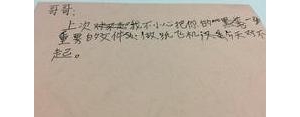 哥哥：
上次我不小心把你的一
重要的文件做纸飞机，对不
起。